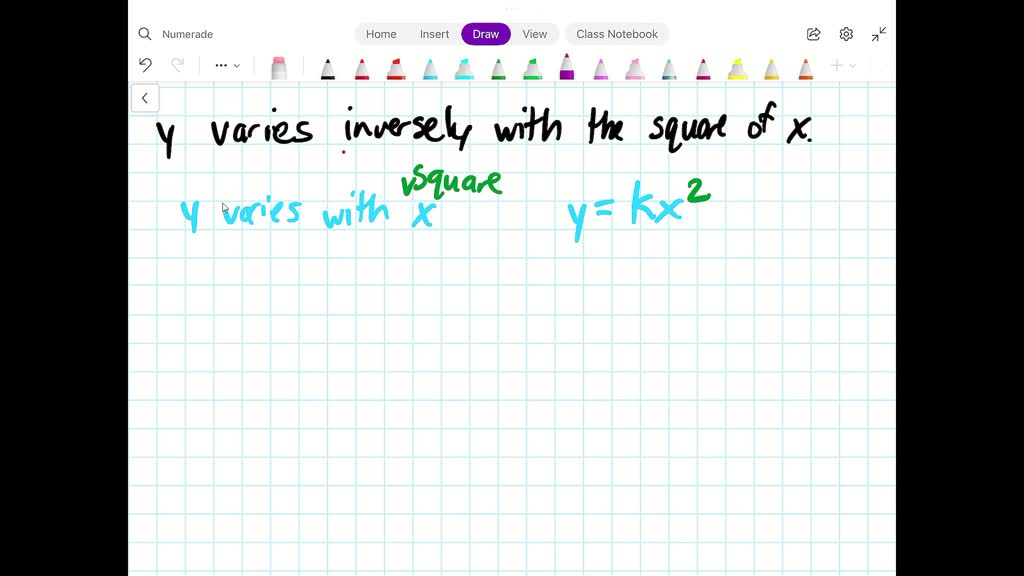 Numerade Home Insert Draw View Class Notebook
y varies inversely with the square of x.
square
y varies with x y = kx²